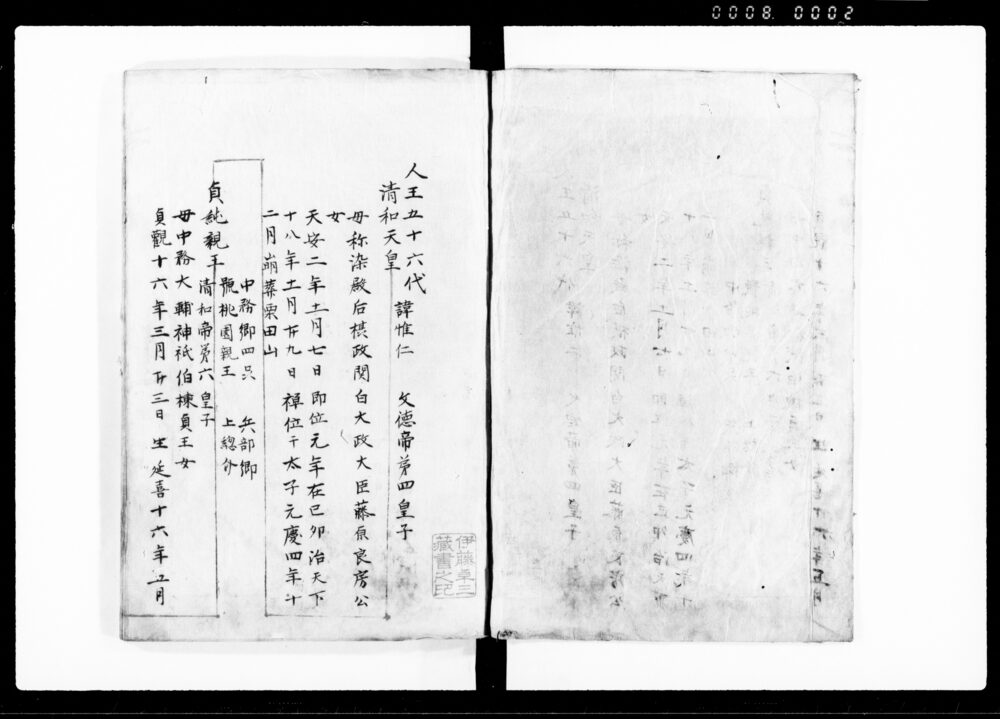 0008. 0002
人王五十六代 諱惟仁 文德帝第四皇子
清和天皇
母称染殿后摂政関白太政大臣藤原良房公
女
天安二年十一月七日即位元年在己卯治天下
十八年十一月廿九日禅位于太子元慶四年十
二月崩葬栗田山
中務卿四品 兵部卿
貞純親王 號桃園親王 上総介
清和帝第六皇子
母中務大輔神祇伯棟貞王女
貞觀十六年三月廿三日生延喜十六年五月
伊藤
藏書之印